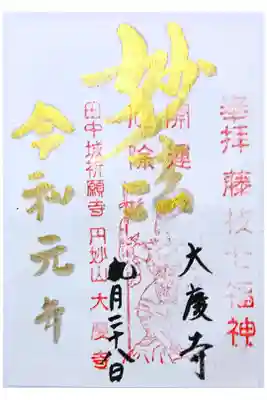 奉拝 藤枝七福神
開運
厄除
妙
大慶寺
九月二十八日
田中城祈願寺 円妙山 大慶寺
令和元年